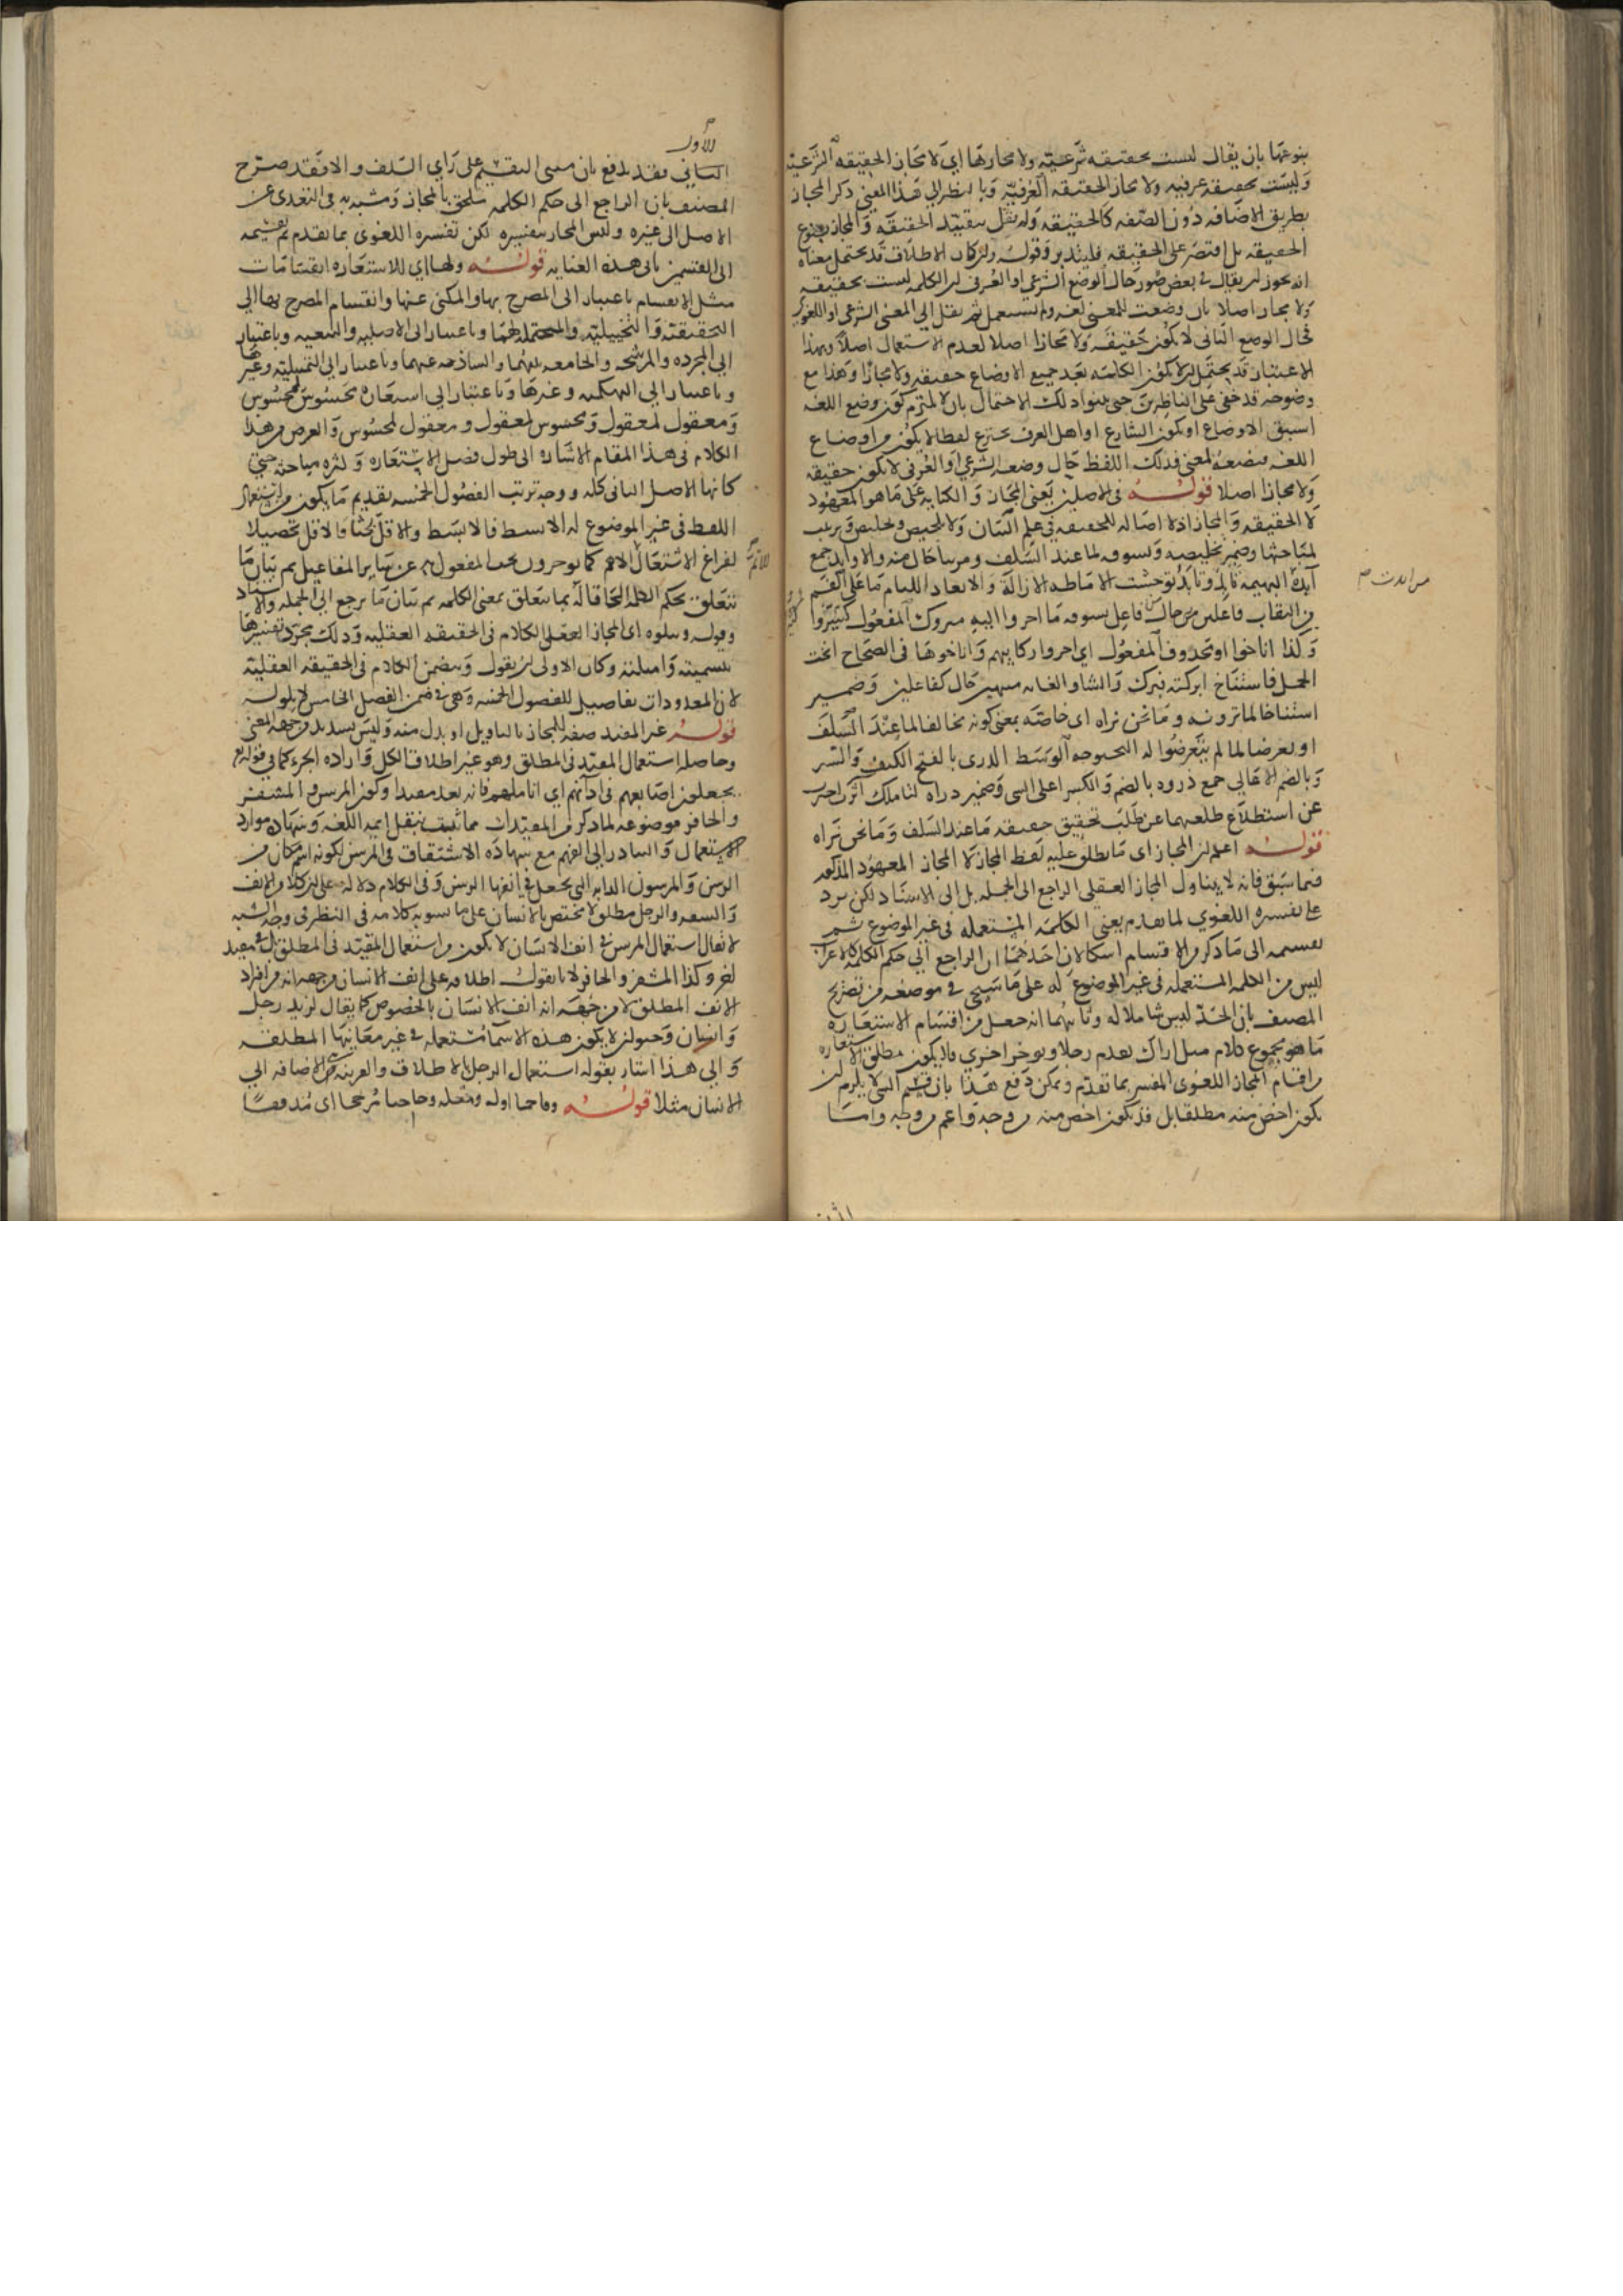 بنوعها بان يقال ليست بحقيقه شرعيّه ولا مجازها اي لا مجاز الحقيقه الشرعيه
وليست بحقيقه عرفيه ولا مجاز الحقيقه العرفيّه وبالنظر الي هذا المعني ذكر المجاز
بطريق الاضافه دون الصّفه كالحقيقه ولم يقل بتقييد الحقيقه والمجاز بنوع
الحقيقه بل اقتصر على الحقيقه فليتدبر وقوله وان كان الاطلاق قد يحتمل معناه
انه يجوز ان يقال في بعض صور حال الوضع الشرعي او العرفي ان الكلمه ليست بحقيقه
ولا مجاز اصلا بان وضعت لمعنى لغه ولم تستعمل ثم نقل الي المعنى الشرعي او اللغوي
فحال الوضع الثاني لا يكون حقيقه ولا مجازا اصلا لعدم الاستعمال اصلا وبهذا
الاعتبار قد يحتمل ان لا يكون الكلمه بعد جميع الاوضاع حقيقه ولا مجازا وهذا مع
وضوحه قد خفي على الناظرين حتى بينوا ذلك الاحتمال بان لا يلتزم كون وضع اللغه
اسبق الاوضاع او يكون الشارع او اهل العرف يخترع لفظا لا يكون من اوضاع
اللغه فيضعه لمعنى فذلك اللفظ حال وضعه الشرعي او العرفي لا يكون حقيقه
ولا مجازا اصلا قوله في الاصلين يعني المجاز والكنايه على ما هو المعهود
لا الحقيقه والمجاز اذ لا اصاله للحقيقه في علم البيان ولا تلخيص وترتيب
لمباحثها وضمير تخليصه وتسوقه لما عند السلف ومرساحال منه والاوابد جمع
آبدة البهيمه تابد وتأبد توحشت الاماطه الازالة والابعاد اللثام ما على الفم
من النقاب فاعلين حال فاعل تسوقه ما اجروا اليه متروك المفعول كثيروا
وكذا اناخوا او محذوف المفعول اي اجروا ركابهم واناخوها في الصحاح انخت
الجمل فاستناخ ابركته فبرك حال كفاعلين وضمير
استناخا لما ترونه وما نحن نراه اي خاصّه بمعنى كونه مخالفا لما عند السّلف
او تعرضا لما لم يتعرضوا له الوسط الذري بالفتح الكنف والستر
وبالضم الاعالي جمع ذروه بالضم والكسر اعلى الشي وضمير ذراه
عن استطلاع طلعهما عن طلب تحقيق حقيقه ما عند السلف وما نحن نراه
قوله اعلم ان المجاز اي ما يطلق عليه لفظ المجاز لا المجاز المعهود المذكور
فيما سبق فانه لا يتناول المجاز العقلي الراجع الي الجمله بل الى الاسناد لكن يرد
على تفسيره اللغوي لما تقدم يعني الكلمه المستعمله في غير الموضوع ثم
تقسيمه الى ما ذكر من الاقسام اشكالان احدهما ان الراجع الي حكم الكلمه كالاعراب
ليس من الكلمه المستعمله في غير الموضوع له على ما سيجي في موضعه من تصريح
المصنف بان الحدّ ليس شاملا له وثانيهما انه جعل من اقسام الاستعاره
ما هو مجموع كلام مثل اراك تقدم رجلا وتوخر اخري فلا يكون مطلق الاستعاره
من اقسام المجاز اللغوي المفسر بما تقدم ويمكن دفع هذا بان قسم الشي لا يلزم ان
يكون اخص منه مطلقا بل قد يكون اخص منه من وجه واعم من وجه واما
الاول
الثاني فقد يدفع بان مبنى التقسيم على راي السّلف والا فقد صرّح
المصنف بان الراجع الى حكم الكلمه ملحق بالمجاز ومشبه به في التعدي عن
الاصل الى غيره وليس المجاز بتفسيره لكن تفسيره اللغوي بما تقدم ثم تقسيمه
الى القسمين يابى هذه العنايه قوله ولها اي للاستعاره انقسامات
مثل الانقسام باعتبار الى المصرح بها والمكني عنها وانقسام المصرح بها الي
التحقيقيّه والتخييليّه والمحتمله لهما وباعتبار الى الاصليه والتبعيه وباعتبار
الي المجرده والمرشحه والجامعه بينهما والساذجه عنهما وباعتبار الي التمثيليّه وغيرها
وباعتبار الي التهكميه وغيرها وباعتبار الي استعاره محسوس لمحسوس
ومعقول لمعقول ومحسوس لمعقول ومعقول لمحسوس والغرض من هذا
الكلام في هذا المقام الاشاره الى طول فصل الاستعاره وكثره مباحثه حتي
كانها الاصل الثاني كله ووجه ترتيب الفصول الخمسه تقديم ما يكون من استعمال
اللفظ في غير الموضوع له الابسط فالابسط والاقل بحثا فالاقل تحصيلا
لفراغ الاشتغال الاهم كما يوخرون بحث المفعول به عن ساير المفاعيل ثم بيان ما
يتعلق بحكم الكلمه الحاقا له بما يتعلق بمعنى الكلمه ثم بيان ما يرجع الي الجمله والاسناد
وقوله ويتلوه اي المجاز العقلي الكلام في الحقيقه العقليه وذلك مجرّد تفسيرها
بتسميته وامثلته وكان الاولى ان يقول ويتضمن الكلام في الحقيقه العقليّه
لان المعدودات تفاصيل للفصول الخمسه وهي في ضمن الفصل الخامس لا يتلوه
قوله غير المفيد صفه للمجاز بالتاويل او بدل منه وليس بسديد من جهه المعني
وحاصله استعمال المقيّد في المطلق وهو غير اطلاق الكل واراده الجزء كما في قوله تع
يجعلون اصابعهم في آذانهم اي اناملهم فانه يعد مفيدا وكون المرسن والمشفر
والحافر موضوعه لما ذكر من المقيّدات مما ثبت بنقل ايمه اللغه وشهاده موارد
الاستعمال والتبادر الي الفهم مع شهاده الاشتقاق في المرسن لكونه اسم مكان من
الرسن والمرسون الدابه التي يجعل في انفها الرسن وفي الكلام دلاله على ان كلا من الانف
والشفه والرجل مطلق لا مختص بالانسان على ما يشعر به كلامه في النظر في وجه الشبه
لا يقال استعمال المرسن في انف الانسان لا يكون من استعمال المقيّد في المطلق بل في مقيد
اخر وكذا المشفر والحافر لانا نقول اطلاقه على انف الانسان من جهه انه من افراد
الانف المطلق لا من جهه انه انف الانسان بالخصوص كما يقال لزيد رجل
وانسان وحيوان لا يكون هذه الاسما مستعمله في غير معانيها المطلقه
والي هذا اشار بقوله استعمال الرجل الاطلاق والقرينه هي الاضافه الي
الانسان مثلا قوله وفاحما اوله ومقله وحاجبا مزججا اي مدققا